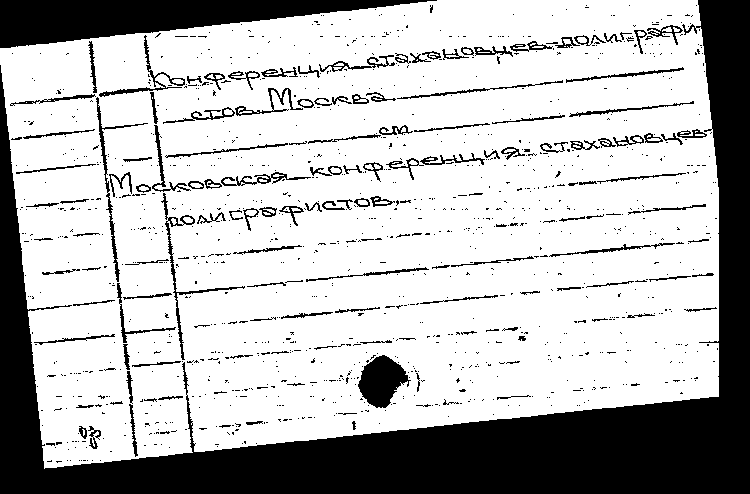 Конференция стахановцев-полиграфи-
стов. Москва
см
Московская конференция стахановцев-
полиграфистов.